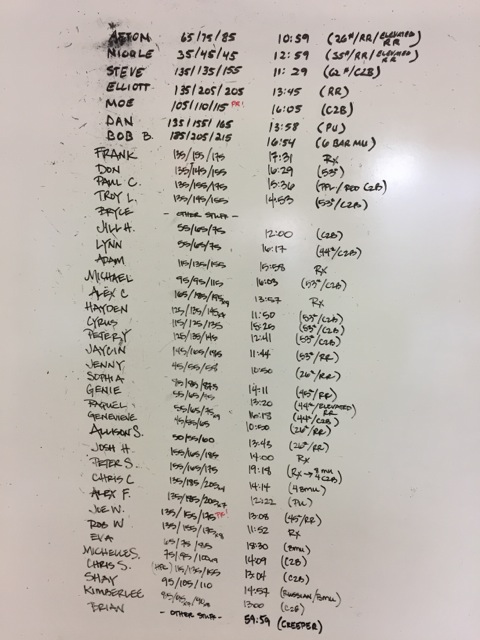 AFTON 65/75/85 10:59 (26#/RR/ELEVATED RR)
NICOLE 35/45/45 12:59 (35#/RR/ELEVATED RR)
STEVE 135/135/155 11:29 (62#/C2B)
ELLIOTT 135/205/205 13:45 (RR)
MOE 105/110/115 PR! 16:05 (C2B)
DAN 135/155/165 13:58 (PU)
BOB B. 185/205/215 16:54 (6 BAR MU)
FRANK 135/155/175 17:31 Rx
DON 135/145/155 16:29 (53#)
PAUL C. 135/155/175 15:36 (/RED C2B)
TROY L. 135/145/155 14:53 (53#/C2B)
BRYCE - OTHER STUFF -
JILL H. 55/65/75 12:00 (C2B)
LYNN 55/65/75 16:17 (44#/C2B)
ADAM 115/135/155 15:58 Rx
MICHAEL 95/95/115 16:03 (53#/C2B)
ALEX C 165/185/195 13:57 Rx
HAYDEN 125/135/145 11:50 (53#/C2B)
CYRUS 115/125/135 15:25 (53#/C2B)
PETER Y 125/135/145 12:41 (53#/C2B)
JAYCIN 145/165/185 11:44 (53#/RR)
JENNY 45/55/55 10:50 (26#/RR)
SOPHIA
GENIE 55/65/75 14:11 (45#/RR)
RAQUEL 55/65/75 13:20 (44#/ELEVATED RR)
GENEVIEVE 45/55/65 16:18 (44#/C2B)
ALLISON S. 50/55/60 10:50 (26#/RR)
JOSH H. 155/165/185 13:43 (26#/RR)
PETER S. 155/165/175 14:00 Rx
CHRIS C 135/185/205 19:18 (Rx → 8 MU 4 C2B)
ALEX F. 135/185/205 14:14 (4 BMU)
JOE W. 135/155/175 PR! 12:22 (PU)
ROB W. 135/155/175 13:08 (45#/RR)
EVA 65/75/85 11:52 Rx
MICHELLE S. 75/95/100 18:30 (BMU)
CHRIS S. 115/135/155 14:09 (C2B)
SHAY 95/105/110 13:04 (C2B)
KIMBERLEE 14:57 (RUSSIAN/BMU)
BRIAN - OTHER STUFF - 13:00 (C2B)
59:59 (CREEPER)